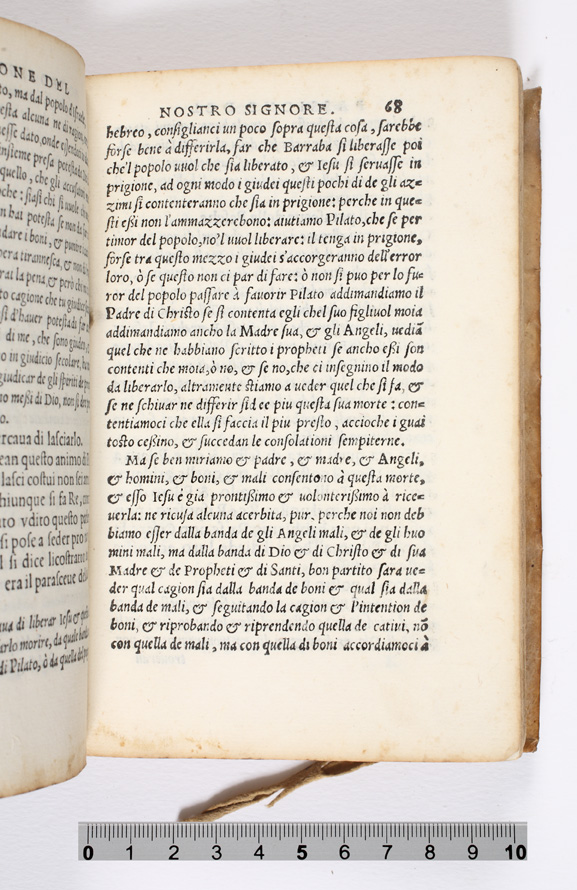 ONE DEL
to, ma dal popolo
esta alcuna
esse dato, onde
insieme presa
quello, che gli
oche: siasi chi si
n hai potesta se non da
dare i boni, &
pera tirannesca, &
rai la pena, & però chi
to cagione che tu
si d'hauer potesta
di me, che sono
o in giudicio secolare,
giudicar de gli spiriti
no meßi di Dio, non si
o.
rcaua di lasciarlo.
ean questo animo di
lasci costui non sei
hiunque si fa Re,
uto vdito questo
si pose a seder pro
l si dice licostra
era il parasceue di
ua di liberar Iesu &
arlo morire, da quale
di Pilato, ò da quella
NOSTRO SIGNORE. 68
hebreo, consiglianci un poco sopra questa cosa, sarebbe
forse bene à differirla, far che Barraba si liberasse poi
che'l popolo uuol che sia liberato, & Iesu si seruasse in
prigione, ad ogni modo i giudei questi pochi di de gli az=
zimi si contenteranno che sia in prigione: perche in que=
sti eßi non l'ammazzerebono: aiutiamo Pilato, che se per
timor del popolo, no'l uuol liberare: il tenga in prigione,
forse tra questo mezzo i giudei s'accorgeranno dell'error
loro, ò se questo non ci par di fare: ò non si puo per lo fu=
ror del popolo passare à fauorir Pilato addimandiamo il
Padre di Christo se si contenta egli chel suo figliuol moia
addimandiamo ancho la Madre sua, & gli Angeli, uediã
quel che ne habbiano scritto i propheti se ancho eßi son
contenti che moia, ò no, & se no, che ci insegnino il modo
da liberarlo, altramente stiamo a ueder quel che si fa, &
se ne schiuar ne differir si dee piu questa sua morte: con=
tentiamoci che ella si faccia il piu presto, accioche i guai
tosto ceßino, & succedan le consolationi sempiterne.
Ma se ben miriamo & padre, & madre, & Angeli,
& homini, & boni, & mali consentono à questa morte,
& esso Iesu è gia prontißimo & uolonterißimo à rice=
uerla: ne ricusa alcuna acerbita, pur, perche noi non deb
biamo esser dalla banda de gli Angeli mali, & de gli huo
mini mali, ma dalla banda di Dio & di Christo & di sua
Madre & de Propheti & di Santi, bon partito sara ue=
der qual cagion sia dalla banda de boni & qual sia dalla
banda de mali, & seguitando la cagion & l'intention de
boni, & riprobando & riprendendo quella de catiui, nõ
con quella de mali, ma con quella di boni accordiamoci à
0 1 2 3 4 5 6 7 8 9 10